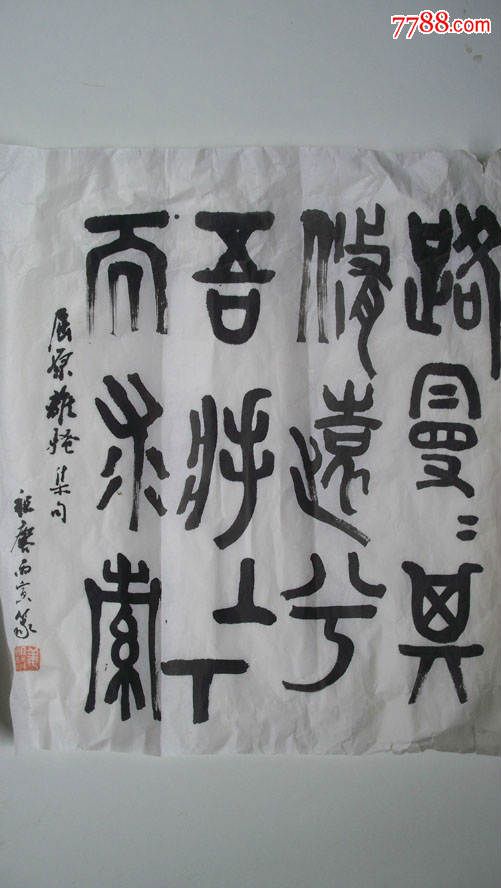 路曼〻其
脩遠兮
吾將上下
而求索
屈原離騷集句
祖康丙寅篆
7788.com